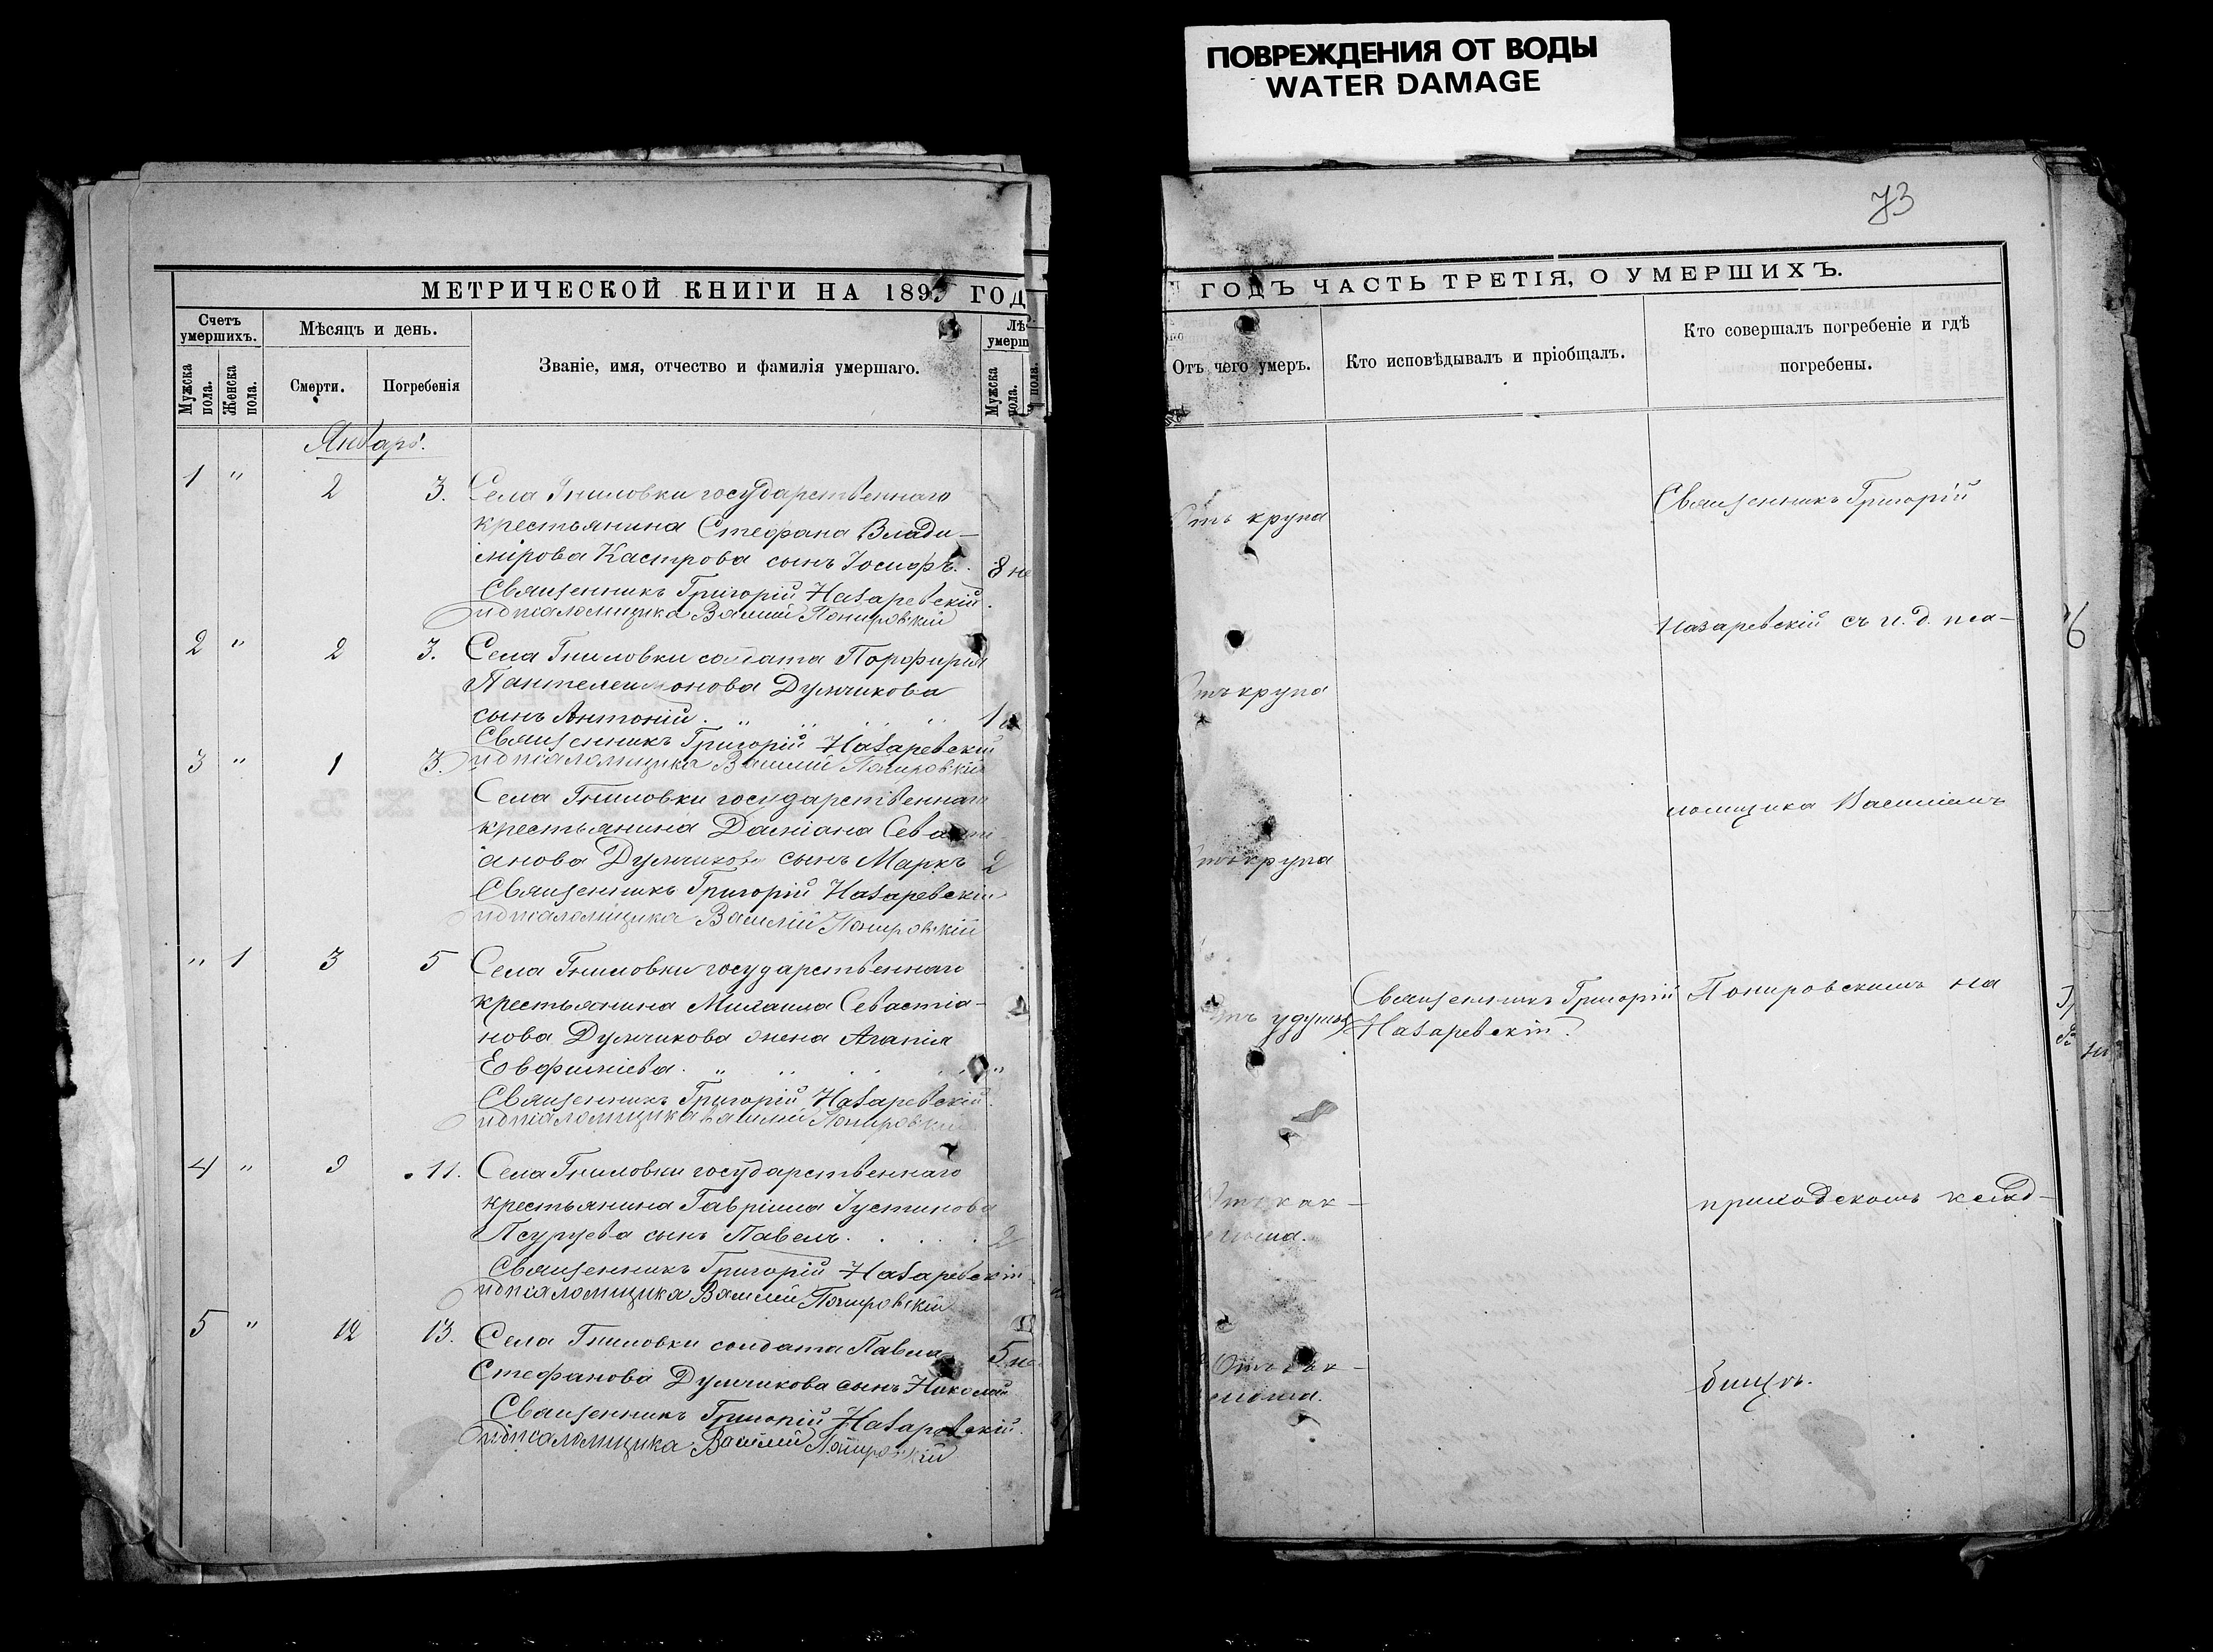 ПОВРЕЖДЕНИЯ ОТ ВОДЫ
WATER DAMAGE
73
МЕТРИЧЕСКОЙ КНИГИ НА 189 ГОД
Счетъ умершихъ.
Мѣсяцъ и день.
Званіе, имя, отчество и фамилія умершаго.
Лѣ
умерш
Мужска пола.
Женска пола.
Смерти.
Погребенія
Мужска пола.
Январь.
1 " 2 3. Села Гниловки государственнаго
крестьянина Стефана Влади-
мірова Кастрова сынъ Іосифъ. 8 не
Священникъ Григорій Назаревскій.
и д псаломщика Василій Понировскій
2 " 2 3. Села Гниловки солдата Порфирія
Пантелеимонова Думчикова
сынъ Антоній. " 1
Священникъ Григорій Назаревскій
3 " 1 3. и д псаломщика Василій Понировскій
Села Гниловки государственнаго
крестьянина Даміана Севасти
анова Думчикова сынъ Маркъ 2
Священникъ Григорій Назаревскій
и д псаломщика Василій Понировскій
" 1 3 5 Села Гниловки государственнаго
крестьянина Михаила Севастіа-
нова Думчикова жена Агапія
Евфиміева. " "
Священникъ Григорій Назаревскій.
и д псаломщика Василій Понировскій
4 " 9 11. Села Гниловки государственнаго
крестьянина Гавріила Іустинова
Псурцева сынъ Павелъ. 2
Священникъ Григорій Назаревскій
и д псаломщика Василій Понировскій
5 " 12 13. Села Гниловки солдата Павла
Стефанова Думчикова сынъ Николай 5 не
Священникъ Григорій Назаревскій.
и д псаломщика Василій Понировскій
ГОДЪ ЧАСТЬ ТРЕТІЯ, О УМЕРШИХЪ.
Отъ чего умеръ.
Кто исповѣдывалъ и пріобщалъ.
Кто совершалъ погребеніе и гдѣ
погребены.
Отъ крупа
Священникъ Григорій
Назаревскій съ и. д. пса-
Отъ крупа
ломщика Василіемъ
Отъ крупа
Отъ удушья
Священникъ Григорій
Назаревскій.
Понировскимъ на
Отъ как-
приходскомъ клад-
Отъ
бищѣ.